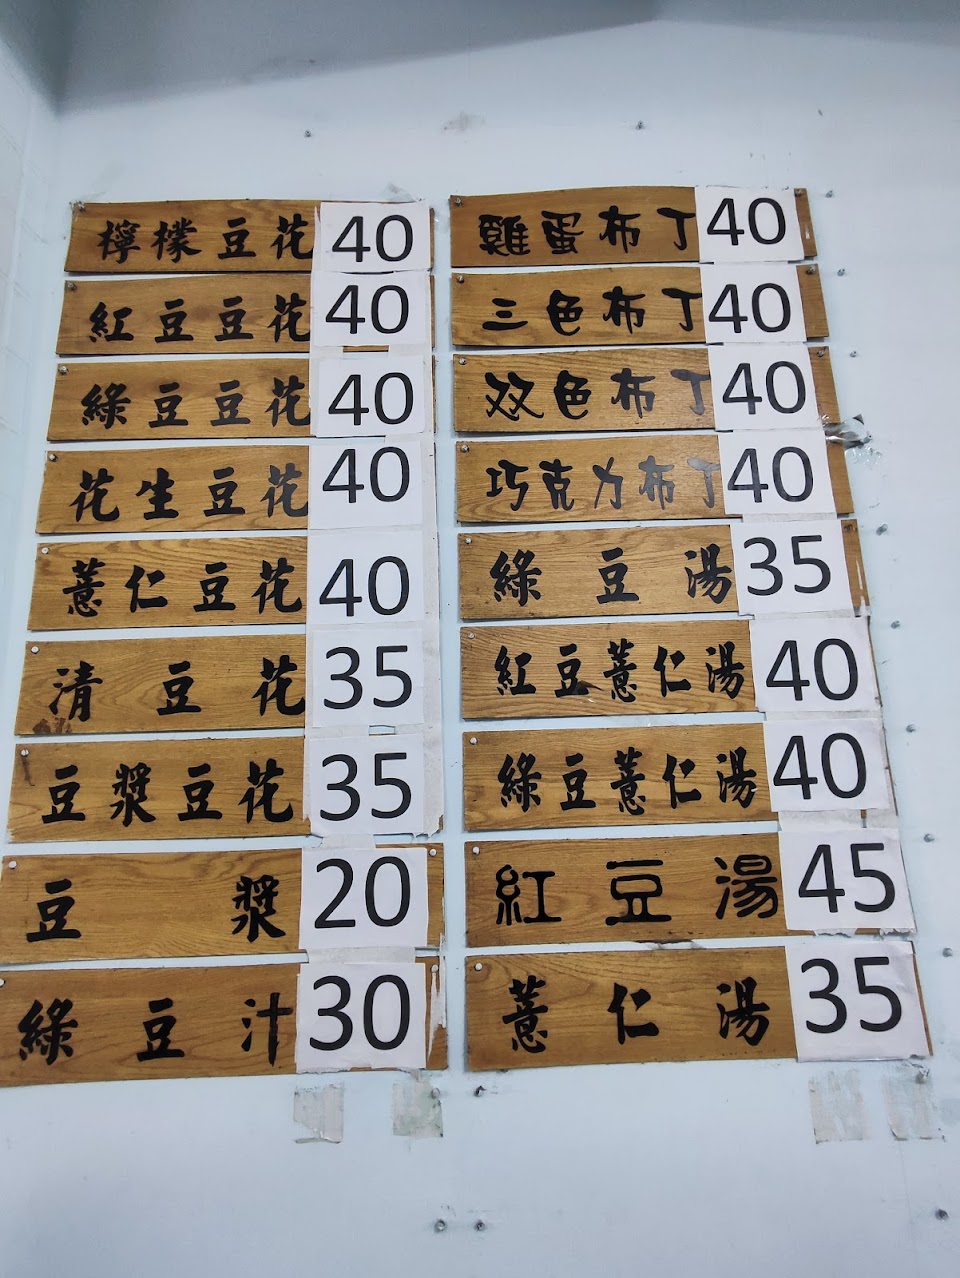 檸檬豆花 40
紅豆豆花 40
綠豆豆花 40
花生豆花 40
薏仁豆花 40
清豆花 35
豆漿豆花 35
豆漿 20
綠豆汁 30
雞蛋布丁 40
三色布丁 40
双色布丁 40
巧克力布丁 40
綠豆湯 35
紅豆薏仁湯 40
綠豆薏仁湯 40
紅豆湯 45
薏仁湯 35